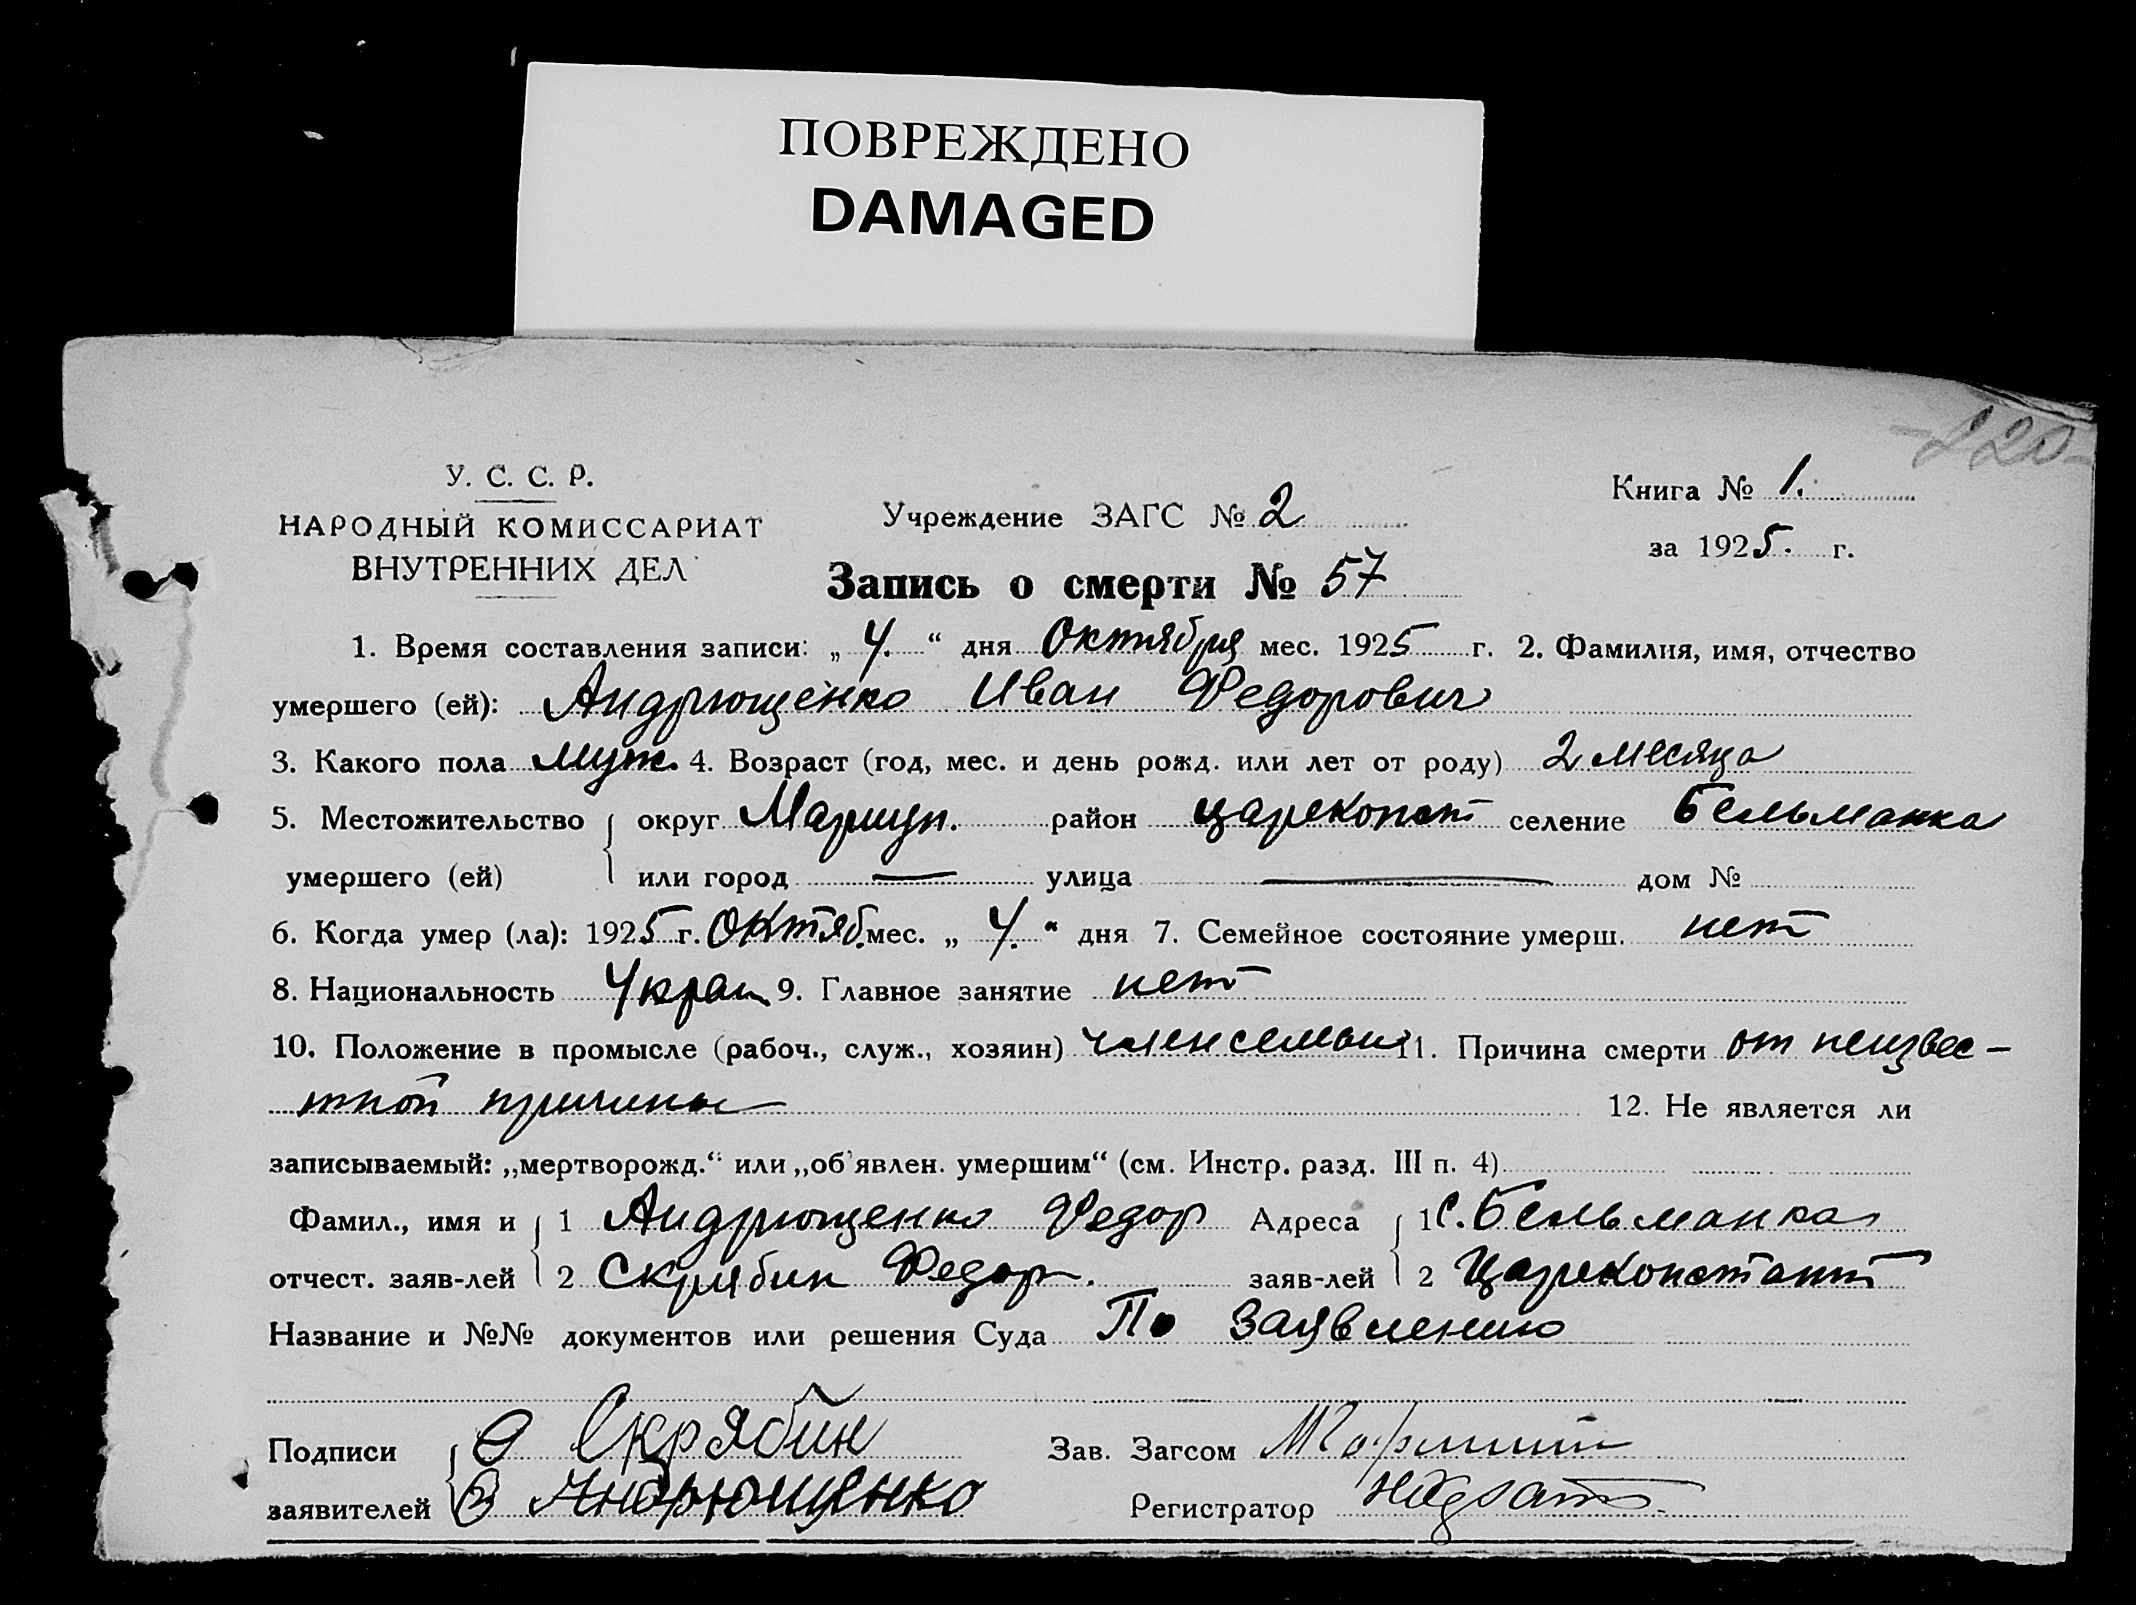 ПОВРЕЖДЕНО
DAMAGED
-220-
У. С. С. Р.
НАРОДНЫЙ КОМИССАРИАТ
ВНУТРЕННИХ ДЕЛ
Учреждение ЗАГС № 2
Книга № 1.
за 1925. г.
Запись о смерти № 57
1. Время составления записи: „4.“ дня Октября мес. 1925 г. 2. Фамилия, имя, отчество
умершего (ей): Андрющенко Иван Федорович
3. Какого пола муж. 4. Возраст (год, мес. и день рожд. или лет от роду) 2 месяца
5. Местожительство округ Мариуп. район Цареконст селение Бельманка
умершего (ей) или город — улица — дом №
6. Когда умер (ла): 1925 г. Октяб. мес. „4.“ дня 7. Семейное состояние умерш. нет
8. Национальность Украин 9. Главное занятие нет
10. Положение в промысле (рабоч., служ., хозяин) член семьи 11. Причина смерти от неизвес-
тной причины 12. Не является ли
записываемый: „мертворожд.“ или „об'явлен. умершим“ (см. Инстр. разд. III п. 4)
Фамил., имя и 1 Андрющенко Федор Адреса 1 С. Бельманка
отчест. заяв-лей 2 Скрябин Федор. заяв-лей 2 Цареконстант
Название и №№ документов или решения Суда По заявлению
Подписи Скрябин Зав. Загсом
заявителей Андрющенко Регистратор